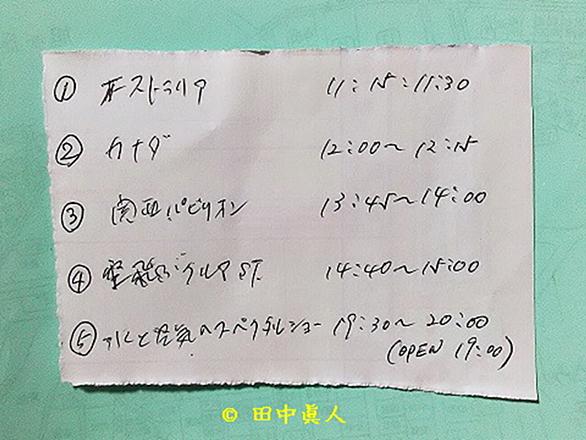 ① オーストラリア 11:15:11:30
② カナダ 12:00~12:15
③ 関西パビリオン 13:45~14:00
④ 空飛ぶクルマST. 14:40~15:00
⑤ 水と空気のスペクタクルショー 19:30~20:00
(OPEN 19:00)
© 田中眞人